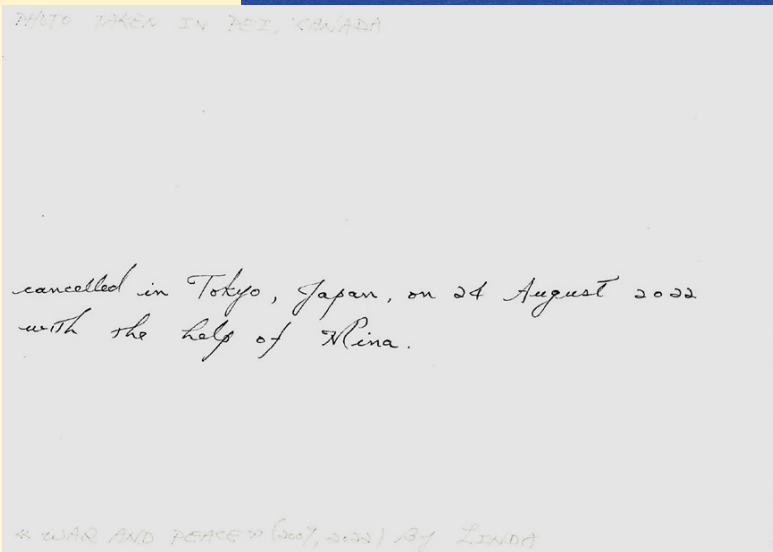 PHOTO TAKEN IN PEI, CANADA
cancelled in Tokyo, Japan, on 24 August 2022
with the help of Mina.
« WAR AND PEACE » (2007, 2022) By LINDA